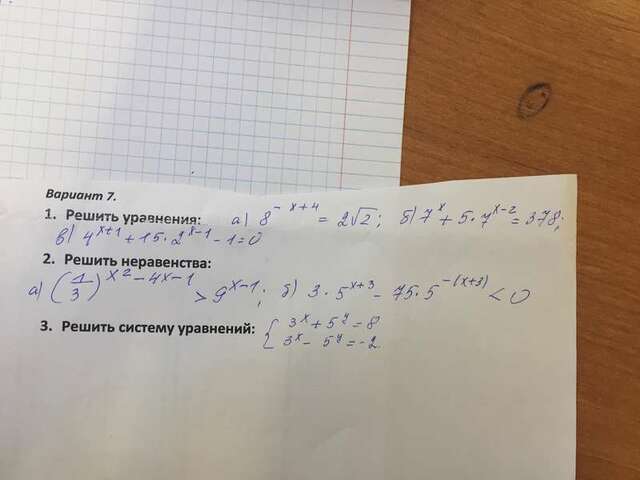 Вариант 7.
1. Решить уравнения: а) 8^(-x+4) = 2√2; б) 7^x + 5·7^(x-2) = 378;
в) 4^(x+1) + 15·2^(x-1) - 1 = 0
2. Решить неравенства:
а) (1/3)^(x²-4x-1) > 9^(x-1); б) 3·5^(x+3) - 75·5^(-(x+3)) < 0
3. Решить систему уравнений: { 3^x + 5^y = 8
3^x - 5^y = -2